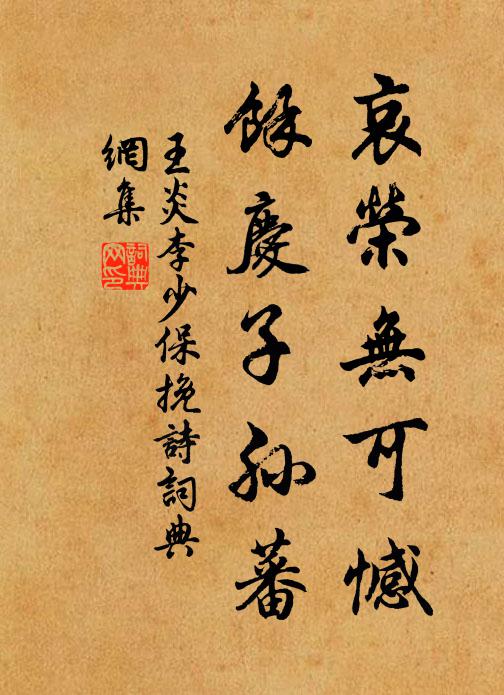 哀榮無可憾
餘慶子孫蕃
王炎李少保挽詩詞典
網集
詞典
网印